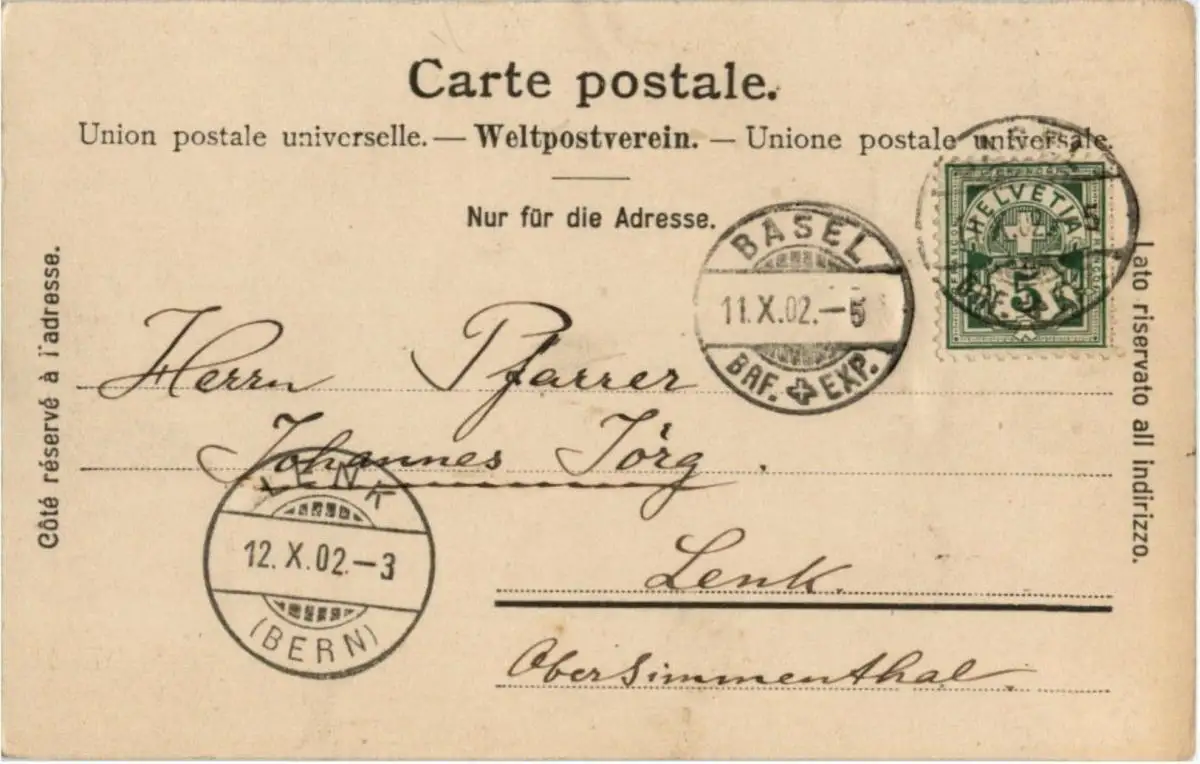 Carte postale.
Union postale universelle. — Weltpostverein. — Unione postale universale.
Nur für die Adresse.
Côté réservé à l'adresse.
Lato riservato all indirizzo.
BASEL
11.X.02.–5
BRF. EXP.
HELVETIA
FRANCO
5
Herrn Pfarrer
Johannes Jörg.
LENK
12.X.02.–3
(BERN)
Lenk.
Obersimmenthal.